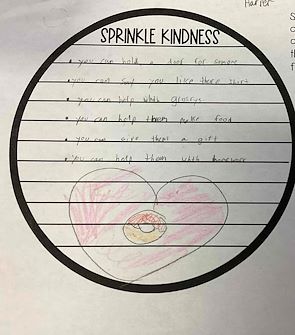 Harper
SPRINKLE KINDNESS
• you can hold a door for someone
• you can say you like there shirt
• you can help with grosrys
• you can help them make food
• you can give them a gift
• you can help them with homework